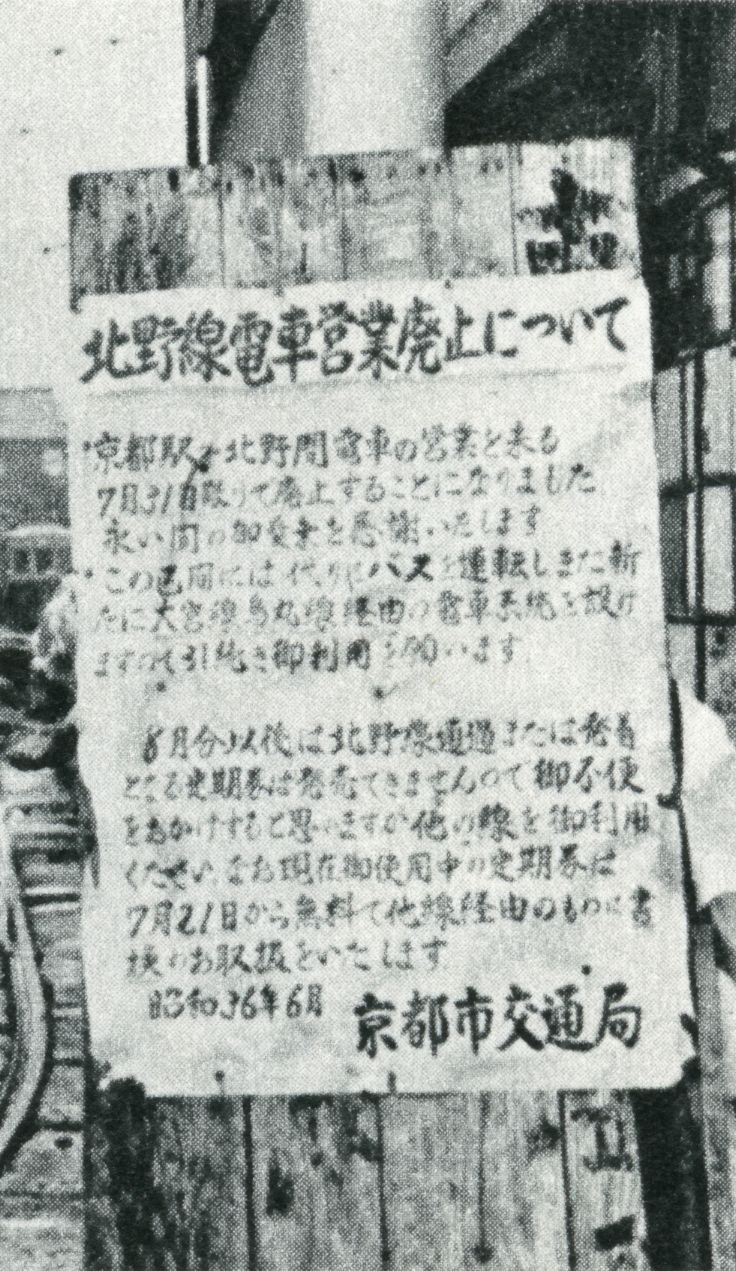 北野線電車営業廃止について
京都駅 北野間電車の営業を来る
7月31日限りで廃止することになりました
永い間の御愛乗を感謝いたします
この区間には代りにバスを運転しまた新
たに大宮線烏丸線経由の電車系統を設け
ますので引続き御利用を います
8月分以後は北野線通過または発着
となる定期券は発売できませんので御不便
をおかけすると思いますが他の線を御利用
くださいなお現在御使用中の定期券は
7月21日から無料で他線経由のものに書
換のお取扱をいたします
昭和36年6月 京都市交通局